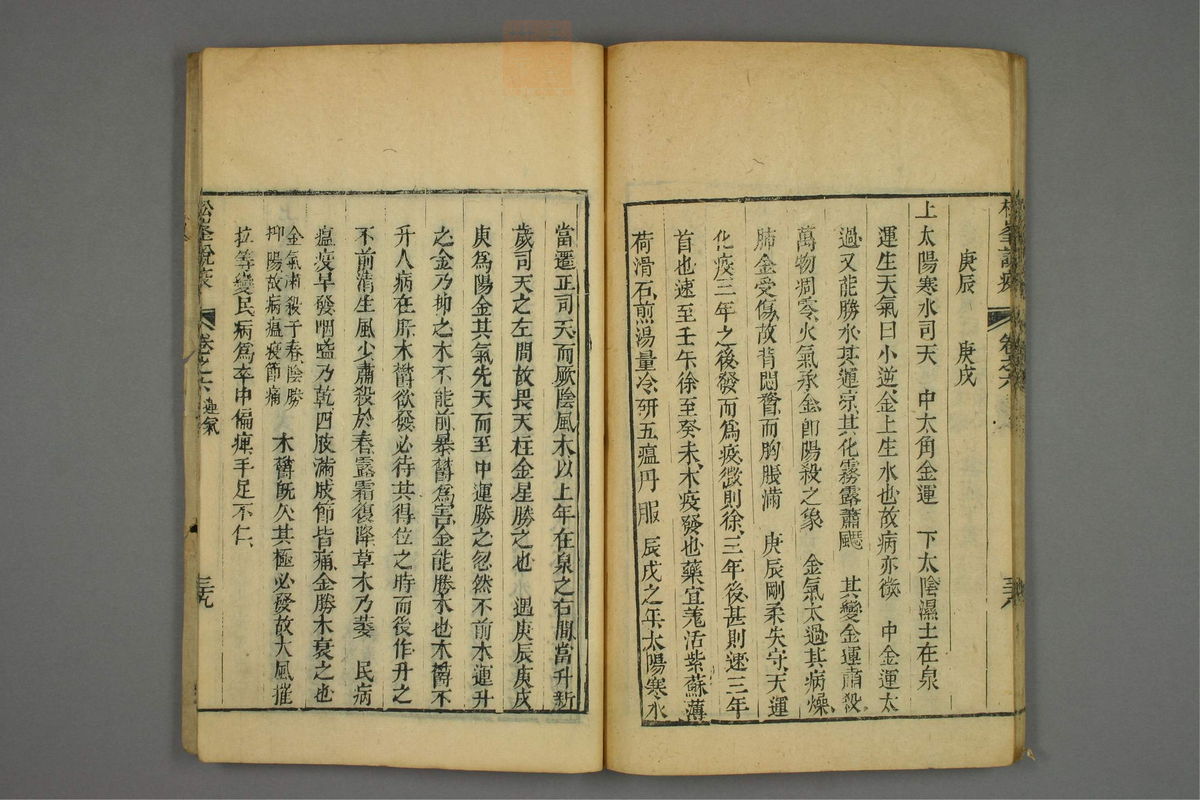 庚辰　庚戌
上太陽寒水司天　中太角金運　下太陰濕土在泉
運生天氣曰小逆金上生水也故病亦微　中金運太
過又能勝水其運涼其化霧露蕭飋　其變金運肅殺
萬物凋零火氣承金卽陽殺之象　金氣太過其病燥
肺金受傷故背悶瞀而胸脹滿　庚辰剛柔失守天運
化疫三年之後發而爲疫微則徐三年後甚則速三年
首也速至壬午徐至癸未木疫發也藥宜羗活紫蘇薄
荷滑石煎湯量冷研五瘟丹服　辰戌之年太陽寒水
松峯說疫　卷之六　三八
當遷正司天而厥陰風木以上年在泉之右間當升新
歲司天之左間故畏天柱金星勝之也　遇庚辰庚戌
庚爲陽金其氣先天而至中運勝之忽然不前木運升
之金乃抑之木不能前暴鬱爲害金能勝木也木鬱不
升人病在肝木鬱欲發必待其得位之時而後作升之
不前清生風少肅殺於春露霜復降草木乃萎　民病
瘟疫早發咽嗌乃乾四肢滿肢節皆痛金勝木衰之也
金氣肅殺于春陰勝
抑陽故病瘟疫節痛
木鬱旣久其極必發故大風摧
拉等變民病爲卒中偏痺手足不仁
松峯說疫　卷之六　運氣　三九